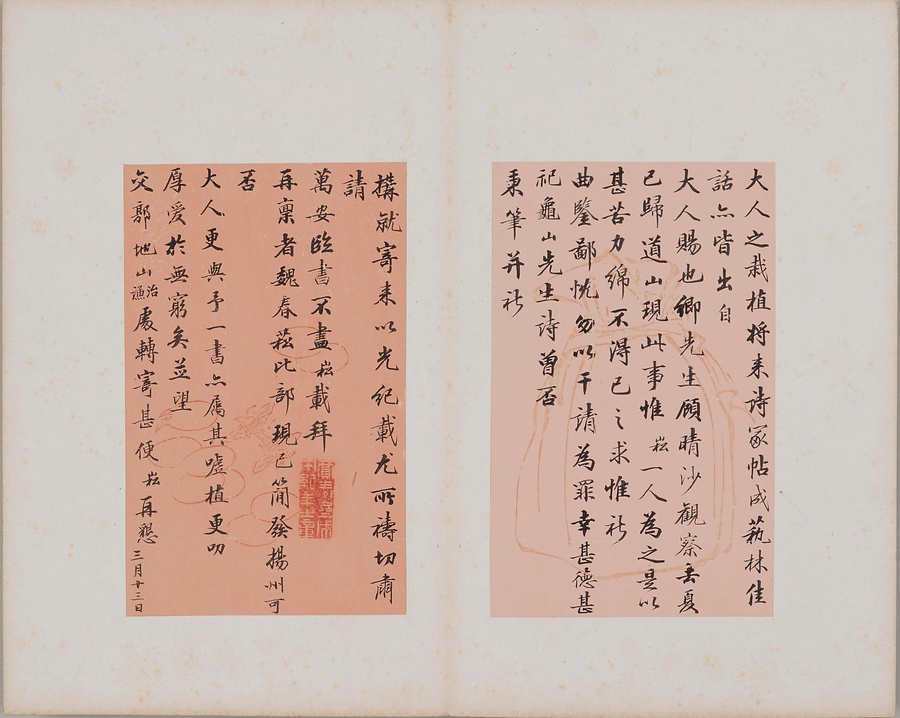 大人之栽植将来詩冢帖成蓺林佳
話亦皆出自
大人賜也鄉先生顧晴沙觀察
已歸道山現此事惟崧一人為之是以
甚苦力綿不得已之求惟祈
曲鑒鄙忱勿以干請為罪幸甚德甚
祀龜山先生詩曾否
秉筆并祈
構就寄来以光紀載尤所禱切肅
請
萬安臨書不盡崧載拜
再稟者魏春崧比部現已簡發揚州可
否
大人更與予一書亦屬其噓植更叨
厚愛於無窮矣並望
交鄒地山治漁處轉寄甚便崧再懇三月廿三日